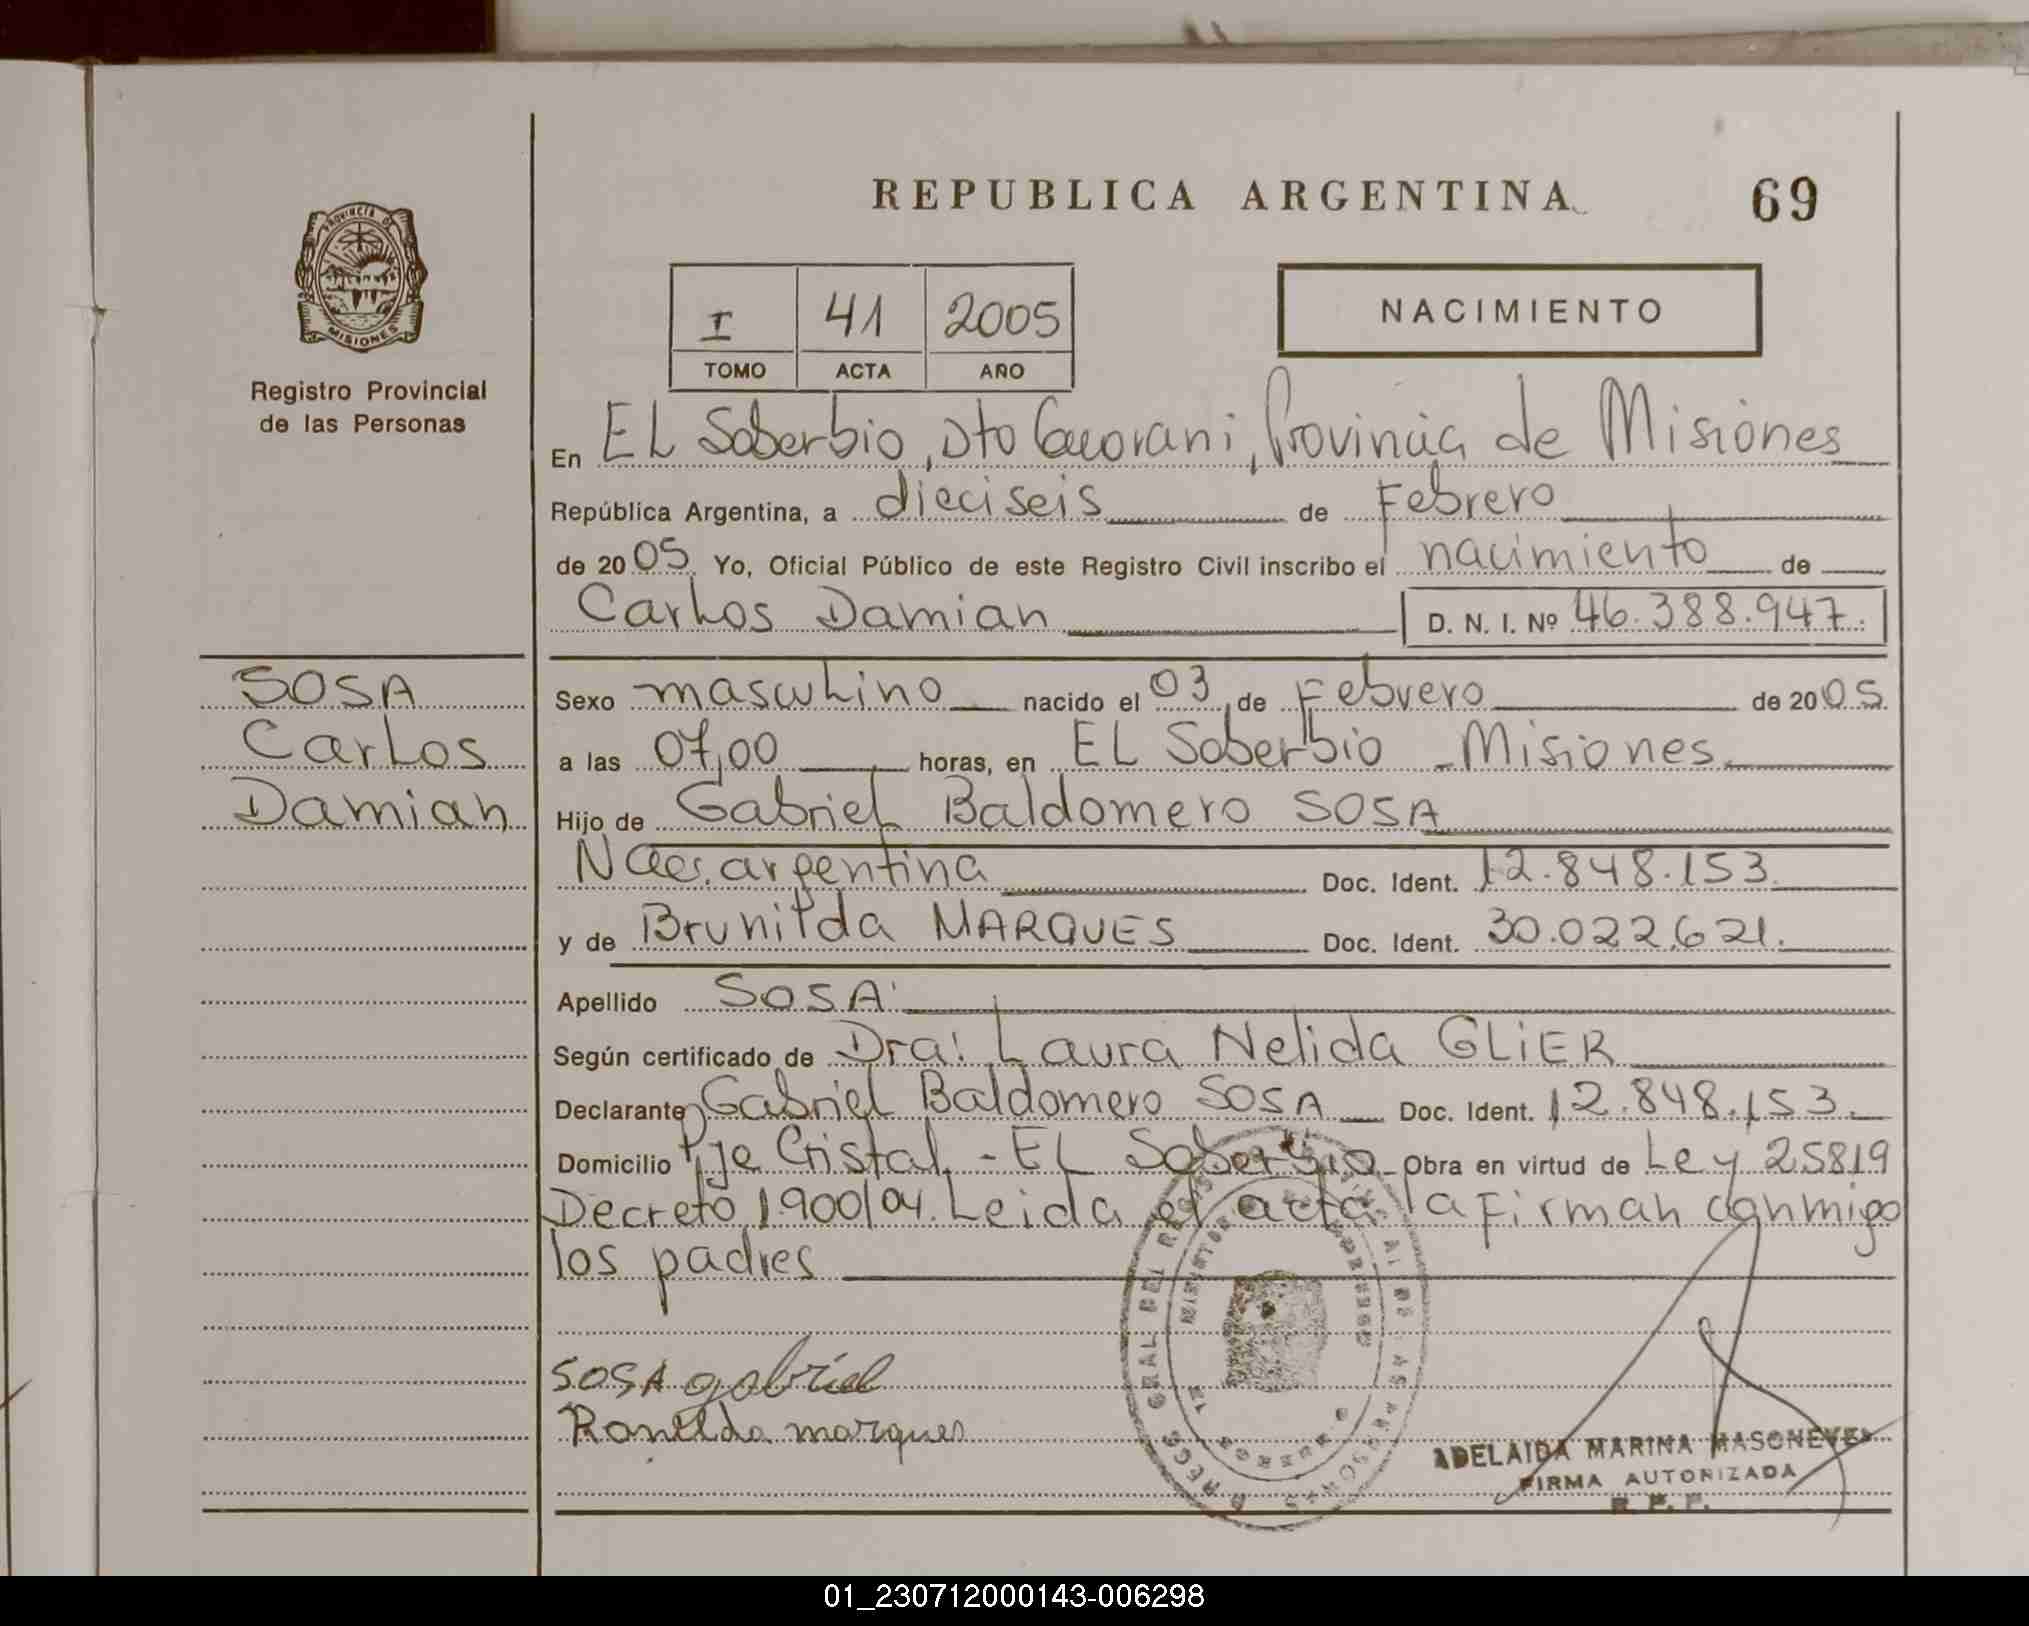 REPUBLICA ARGENTINA
69
PROVINCIA DE
MISIONES
Registro Provincial
de las Personas
I 41 2005
TOMO ACTA AÑO
NACIMIENTO
En EL Soberbio, Dto Guarani, Provincia de Misiones
República Argentina, a dieciseis de Febrero
de 2005 Yo, Oficial Público de este Registro Civil inscribo el nacimiento de
Carlos Damian D. N. I. Nº 46.388.947.
SOSA
Carlos
Damian
Sexo masculino nacido el 03 de Febrero de 2005
a las 07,00 horas, en EL Soberbio - Misiones
Hijo de Gabriel Baldomero SOSA
Nac. argentina Doc. Ident. 12.848.153
y de Brunilda MARQUES Doc. Ident. 30.022.621.
Apellido SOSA
Según certificado de Dra: Laura Nelida GLIER
Declarante Gabriel Baldomero SOSA Doc. Ident. 12.848.153.
Domicilio Pje Cristal - EL Soberbio Obra en virtud de Ley 25819
Decreto 1900/04. Leida el acta la firman conmigo
los padres
SOSA gabriel
Ronilda marques
ADELAIDA MARINA
FIRMA AUTORIZADA
R. P. P.
01_230712000143-006298